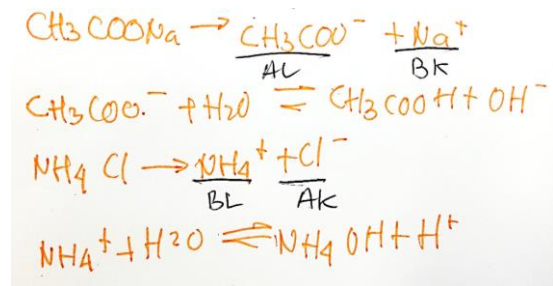 CH3COONa → CH3COO⁻ + Na⁺
AL BK
CH3COO.⁻ + H2O ⇌ CH3COOH + OH⁻
NH4 Cl → NH4⁺ + Cl⁻
BL AK
NH4⁺ + H2O ⇌ NH4OH + H⁺